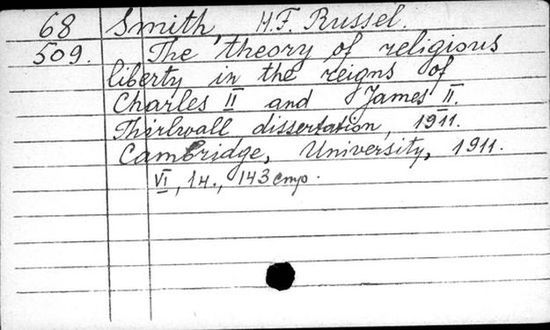 68 Smith, H.F. Russel.
509. The theory of religious
liberty in the reigns of
Charles II and James II.
Thirlwall dissertation, 1911.
Cambridge, University, 1911.
VI, 1 н., 143 стр.